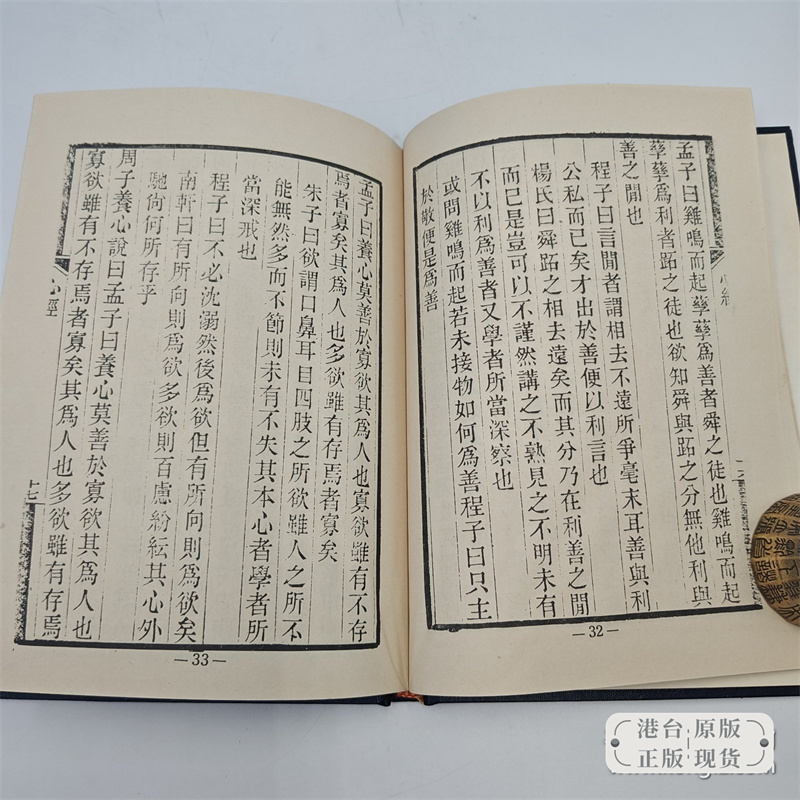 孟子曰雞鳴而起孳孳爲善者舜之徒也雞鳴而起
孳孳爲利者跖之徒也欲知舜與跖之分無他利與
善之閒也
程子曰言閒者謂相去不遠所爭毫末耳善與利
公私而已矣才出於善便以利言也
楊氏曰舜跖之相去遠矣而其分乃在利善之閒
而已是豈可以不謹然講之不熟見之不明未有
不以利爲善者又學者所當深察也
或問雞鳴而起若未接物如何爲善程子曰只主
於敬便是爲善
—32—
孟子曰養心莫善於寡欲其爲人也寡欲雖有不存
焉者寡矣其爲人也多欲雖有存焉者寡矣
朱子曰欲謂口鼻耳目四肢之所欲雖人之所不
能無然多而不節則未有不失其本心者學者所
當深戒也
程子曰不必沈溺然後爲欲但有所向則爲欲矣
南軒曰有所向則爲欲多欲則百慮紛紜其心外
馳尙何所存乎
周子養心說曰孟子曰養心莫善於寡欲其爲人也
寡欲雖有不存焉者寡矣其爲人也多欲雖有存焉
心經
十七
—33—
港台 原版
正版 现货